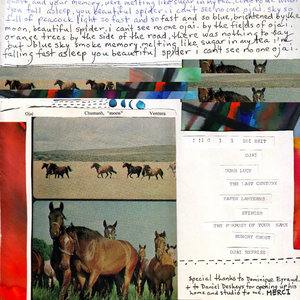 you fall asleep, you beautiful spider, i can't see no one ojai. sky so
full of peacock light so fast and so fast and so blue, brightened by the
moon, beautiful spider, i can't see no one ojai. by the fields of ojai.
orange trees by the side of the road, there was nothing to say
but a blue sky smoke memory melting like sugar in my tea. i'm
falling fast asleep you beautiful spider i can't see no one ojai.
Ojai
Chumash, "moon"
Ventura
OJAI
DEAR LUCY
THE LAST CENTURY
PAPER LANTERNS
STINGER
THE PURPOSE OF YOUR NAME
MEMORY GHOST
OJAI REPRISE
Special thanks to Dominique
& to Daniel Deshays for opening up his
home and studio to us. MERCI